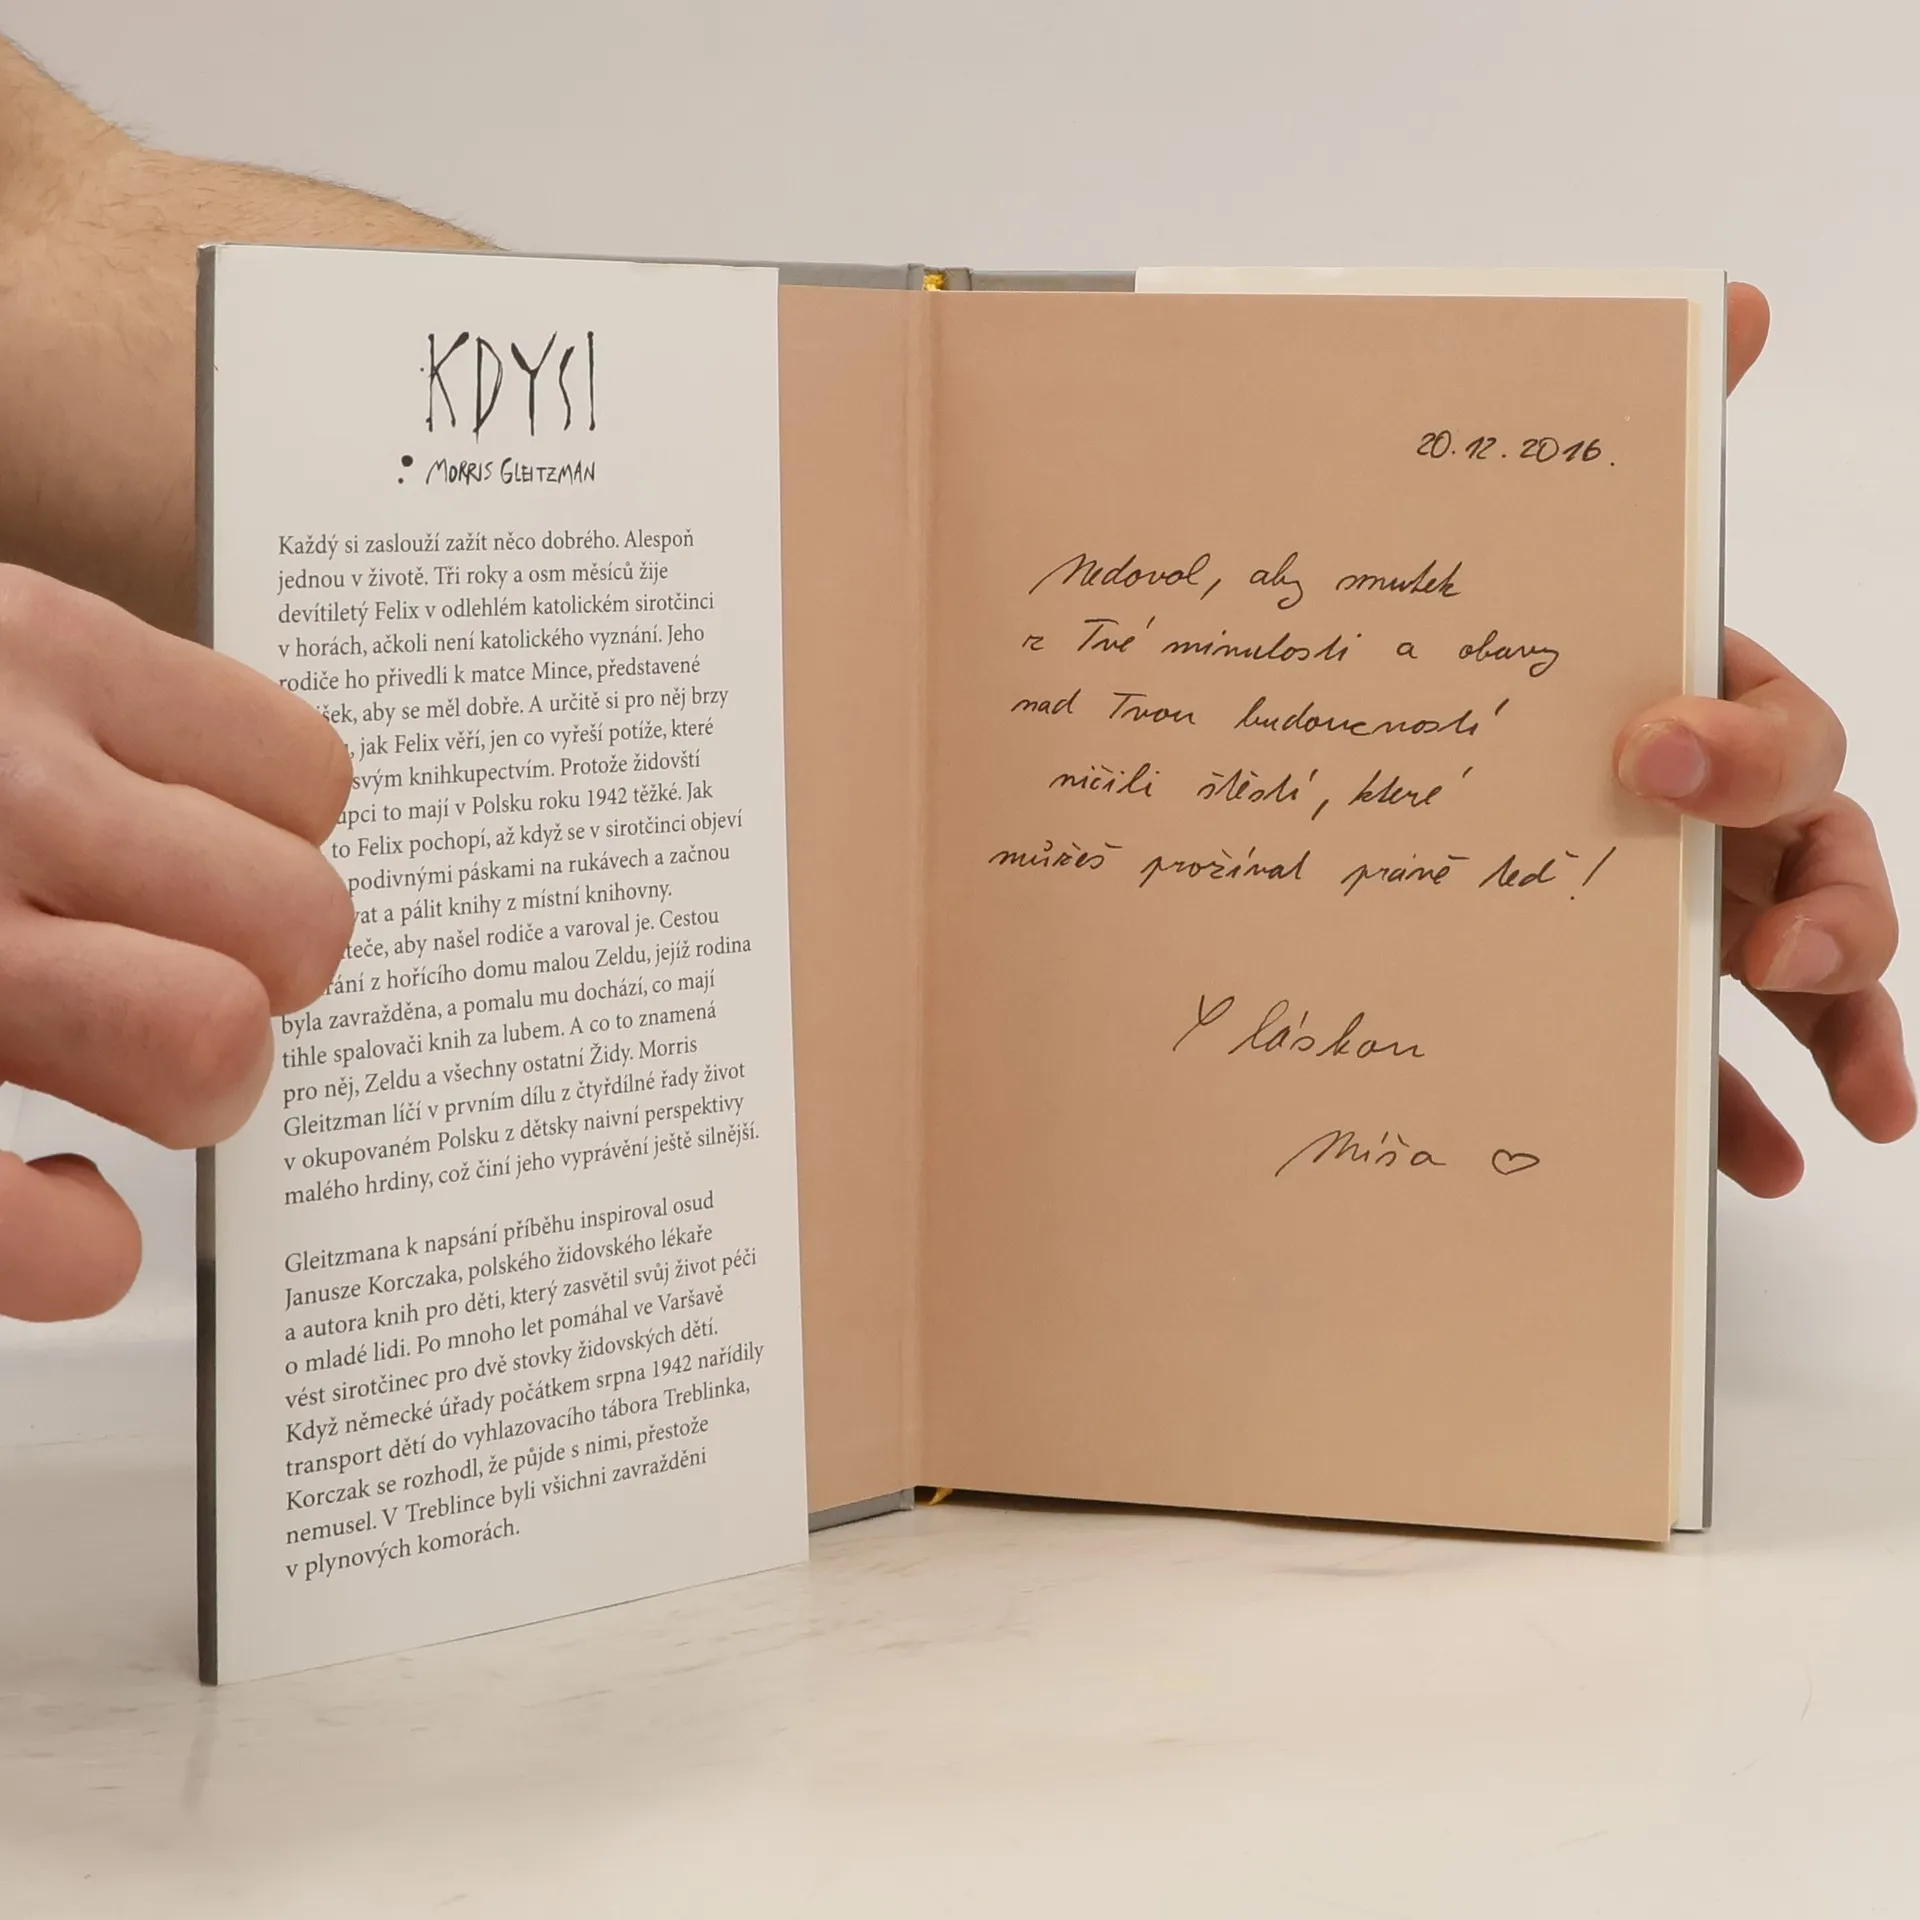 KDYSI
MORRIS GLEITZMAN
Každý si zaslouží zažít něco dobrého. Alespoň
jednou v životě. Tři roky a osm měsíců žije
devítiletý Felix v odlehlém katolickém sirotčinci
v horách, ačkoli není katolického vyznání. Jeho
rodiče ho přivedli k matce Mince, představené
aby se měl dobře. A určitě si pro něj brzy
jak Felix věří, jen co vyřeší potíže, které
svým knihkupectvím. Protože židovští
to mají v Polsku roku 1942 těžké. Jak
to Felix pochopí, až když se v sirotčinci objeví
podivnými páskami na rukávech a začnou
a pálit knihy z místní knihovny.
aby našel rodiče a varoval je. Cestou
z hořícího domu malou Zeldu, jejíž rodina
byla zavražděna, a pomalu mu dochází, co mají
tihle spalovači knih za lubem. A co to znamená
pro něj, Zeldu a všechny ostatní Židy. Morris
Gleitzman líčí v prvním dílu z čtyřdílné řady život
v okupovaném Polsku z dětsky naivní perspektivy
malého hrdiny, což činí jeho vyprávění ještě silnější.
Gleitzmana k napsání příběhu inspiroval osud
Janusze Korczaka, polského židovského lékaře
a autora knih pro děti, který zasvětil svůj život péči
o mladé lidi. Po mnoho let pomáhal ve Varšavě
vést sirotčinec pro dvě stovky židovských dětí.
Když německé úřady počátkem srpna 1942 nařídily
transport dětí do vyhlazovacího tábora Treblinka,
Korczak se rozhodl, že půjde s nimi, přestože
nemusel. V Treblince byli všichni zavražděni
v plynových komorách.
20.12.2016.
Nedovol, aby smutek
z Tvé minulosti a obavy
nad Tvou budoucností
ničili štěstí, které
můžeš prožívat právě teď!
S láskou
Míša ♡